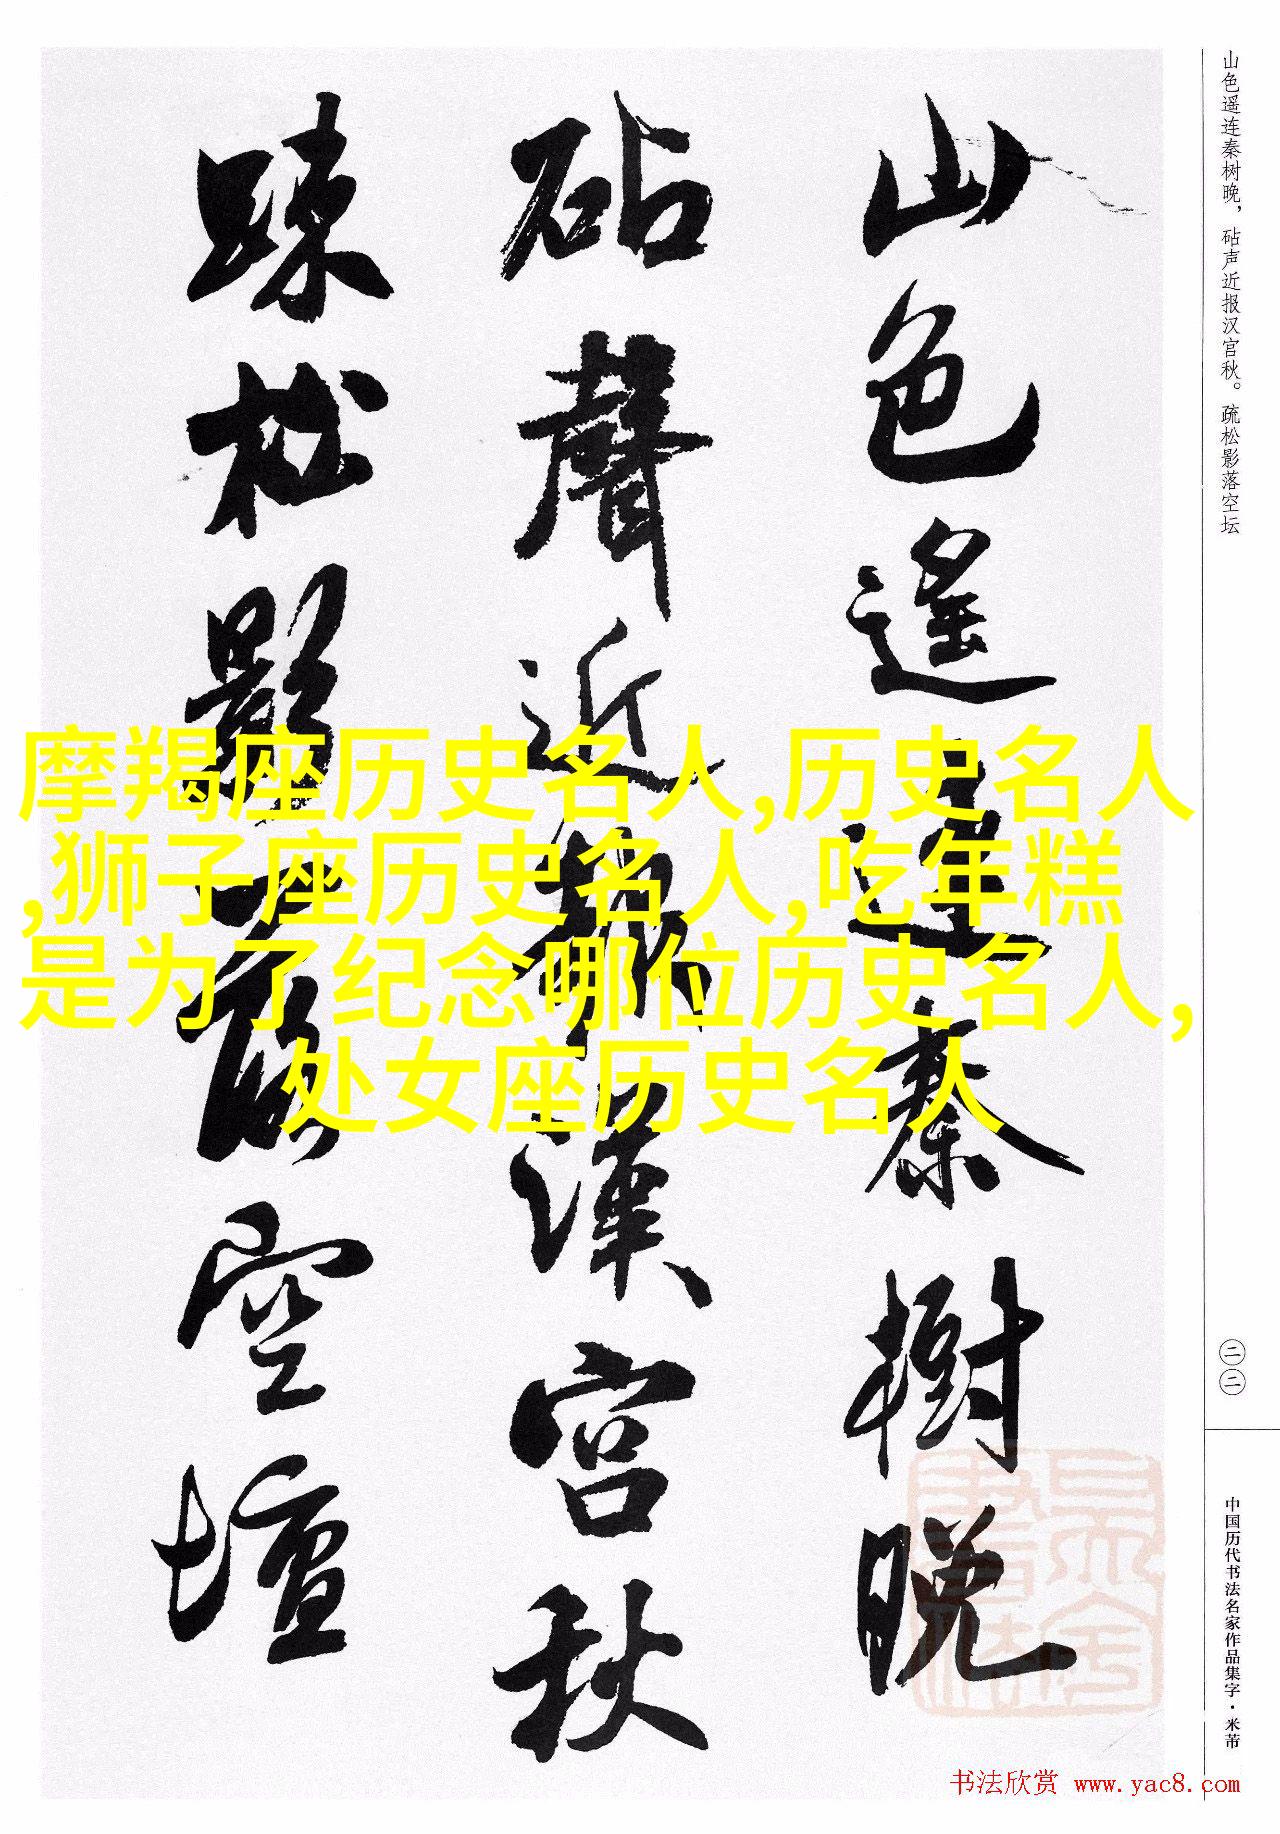 山色遥连秦树晚，砧声近报汉宫秋。疏松影落空坛
山色遥連秦樹晚
砧聲近報漢宮秋
踈松影落空壇
摩羯座历史名人,历史名人
,狮子座历史名人,吃年糕
是为了纪念哪位历史名人,
处女座历史名人
二二
中国历代书法名家作品集字·米芾
书法欣赏 www.yac8.com